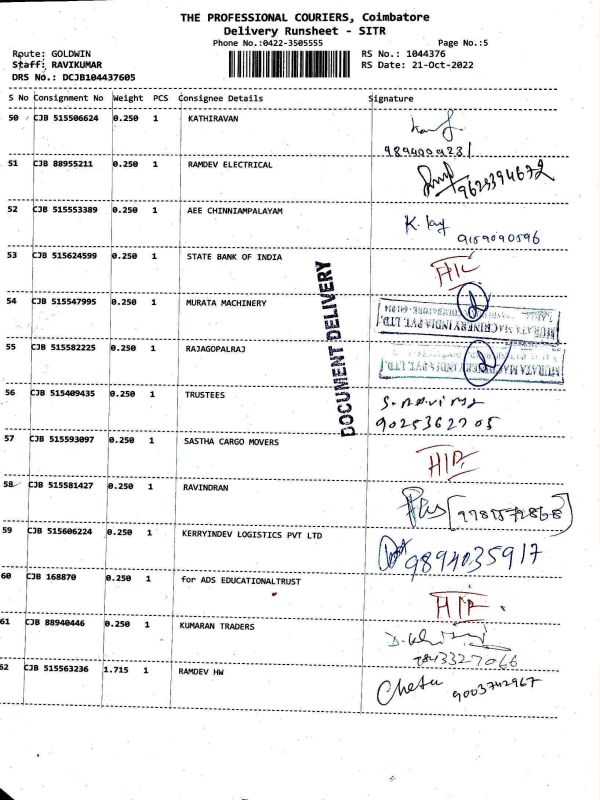 THE PROFESSIONAL COURIERS, Coimbatore
Delivery Runsheet - SITR
Phone No.:0422-3505555 Page No.:5
Route: GOLDWIN RS No.: 1044376
Staff: RAVIKUMAR RS Date: 21-Oct-2022
DRS No.: DCJB104437605
S No Consignment No Weight PCS Consignee Details Signature
50 CJB 515506624 0.250 1 KATHIRAVAN
9894009231
51 CJB 88955211 0.250 1 RAMDEV ELECTRICAL
9629394672
52 CJB 515553389 0.250 1 AEE CHINNIAMPALAYAM
9159090596
53 CJB 515624599 0.250 1 STATE BANK OF INDIA
54 CJB 515547995 0.250 1 MURATA MACHINERY
MURATA MACHINERY INDIA PVT. LTD.
55 CJB 515582225 0.250 1 RAJAGOPALRAJ
MURATA MACHINERY INDIA PVT. LTD.
DOCUMENT DELIVERY
56 CJB 515409435 0.250 1 TRUSTEES
9025362705
57 CJB 515593097 0.250 1 SASTHA CARGO MOVERS
58 CJB 515581427 0.250 1 RAVINDRAN
59 CJB 515606224 0.250 1 KERRYINDEV LOGISTICS PVT LTD
9894035917
60 CJB 168870 0.250 1 for ADS EDUCATIONALTRUST
61 CJB 88940446 0.250 1 KUMARAN TRADERS
7843327066
62 CJB 515563236 1.715 1 RAMDEV HW
9003742967